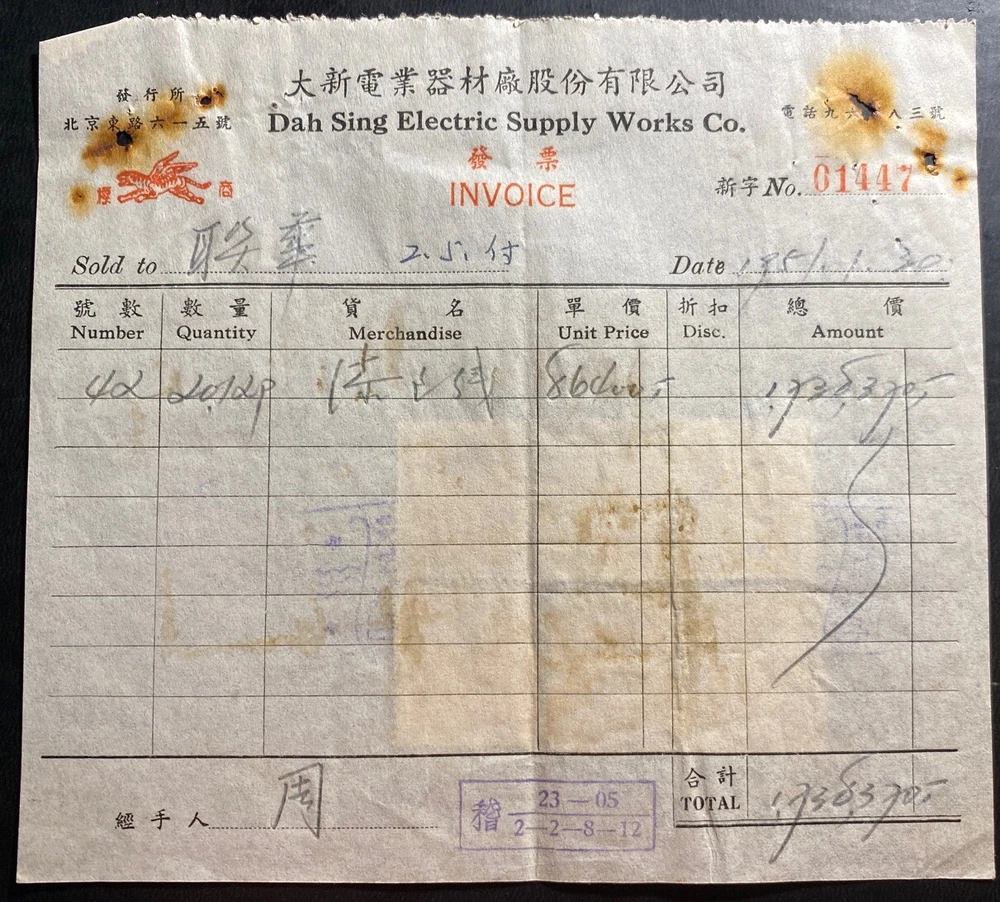 大新電業器材廠股份有限公司
發行所
北京東路六一五號
Dah Sing Electric Supply Works Co.
電話九六 八三號
發票
INVOICE
標 商
新字 No. 01447
Sold to 聯華 2.5.付
Date 1951.1.30.
號數 數量 貨名 單價 折扣 總價
Number Quantity Merchandise Unit Price Disc. Amount
42
合計
TOTAL
經手人 周
稽 23—05
2—2—8—12